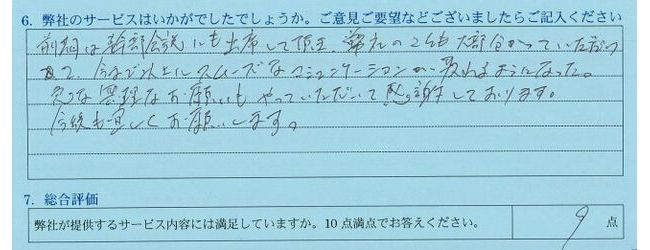 6. 弊社のサービスはいかがでしたでしょうか。ご意見ご要望などございましたらご記入ください
前期は幹部会議にも出席して頂き、弊社の事も大部分かっていただけ
て、今まで以上にスムーズなコミュニケーションが取れるようになった。
急な無理なお願いもやっていただいて感謝しております。
今後も宜しくお願いします。
7. 総合評価
弊社が提供するサービス内容には満足していますか。10 点満点でお答えください。 9 点